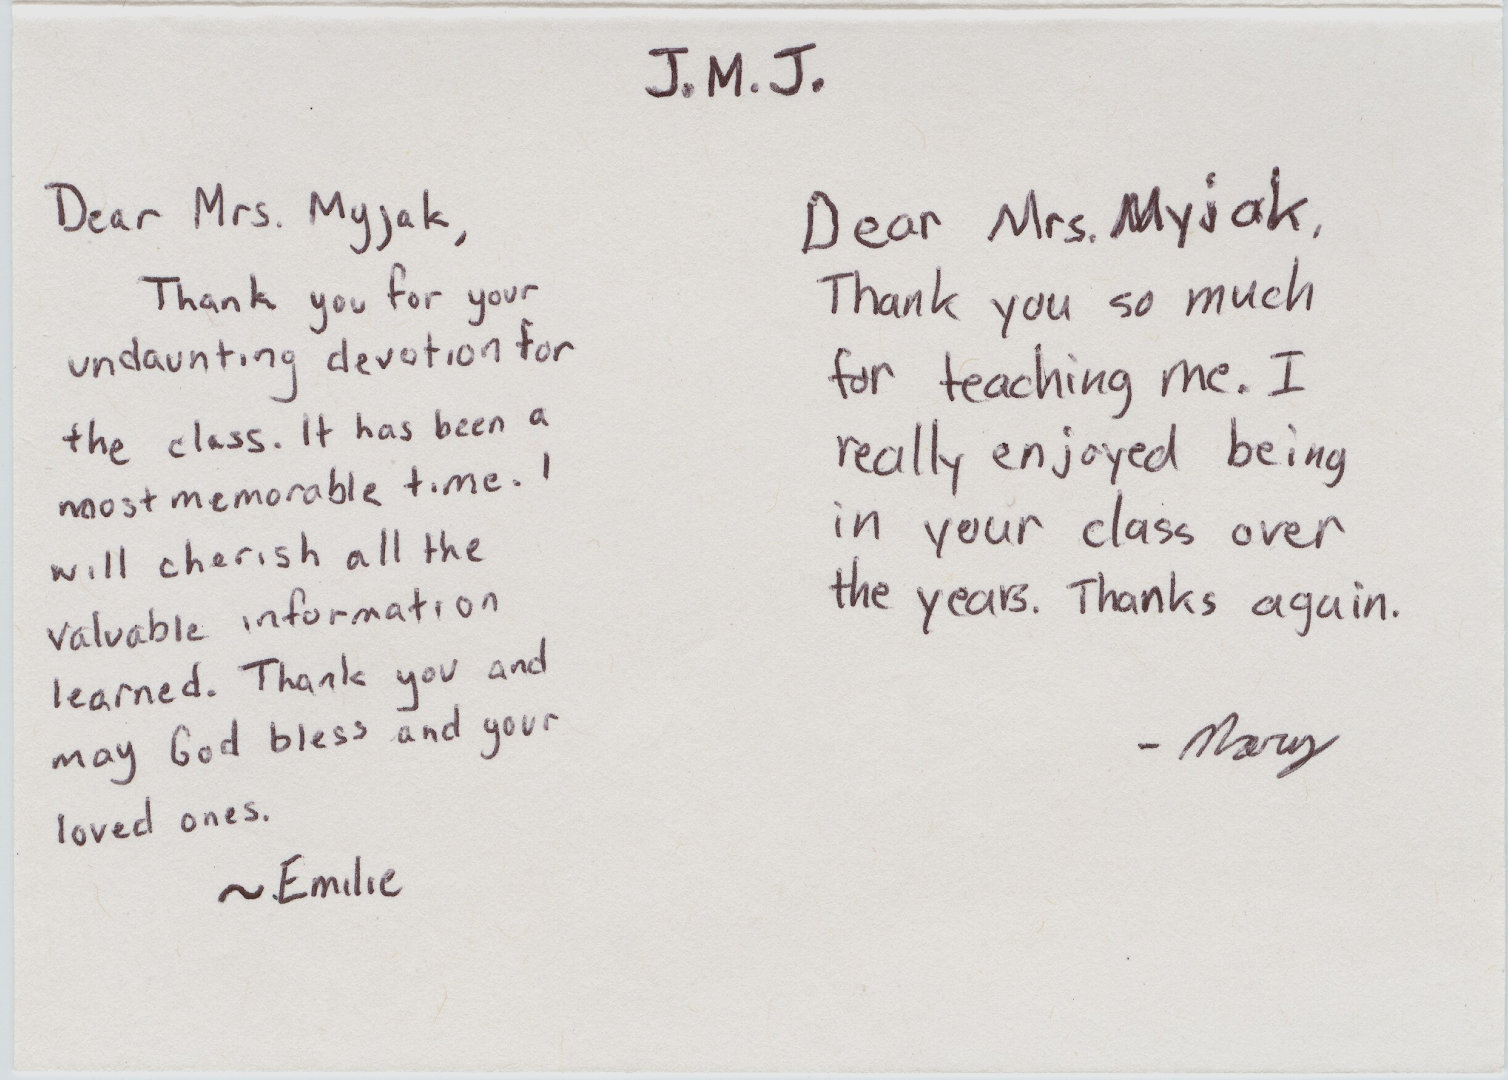 J.M.J.
Dear Mrs. Myjak,
Thank you for your
undaunting devotion for
the class. It has been a
most memorable time. I
will cherish all the
valuable information
learned. Thank you and
may God bless and your
loved ones.
~Emilie
Dear Mrs. Myjak,
Thank you so much
for teaching me. I
really enjoyed being
in your class over
the years. Thanks again.
- Mary